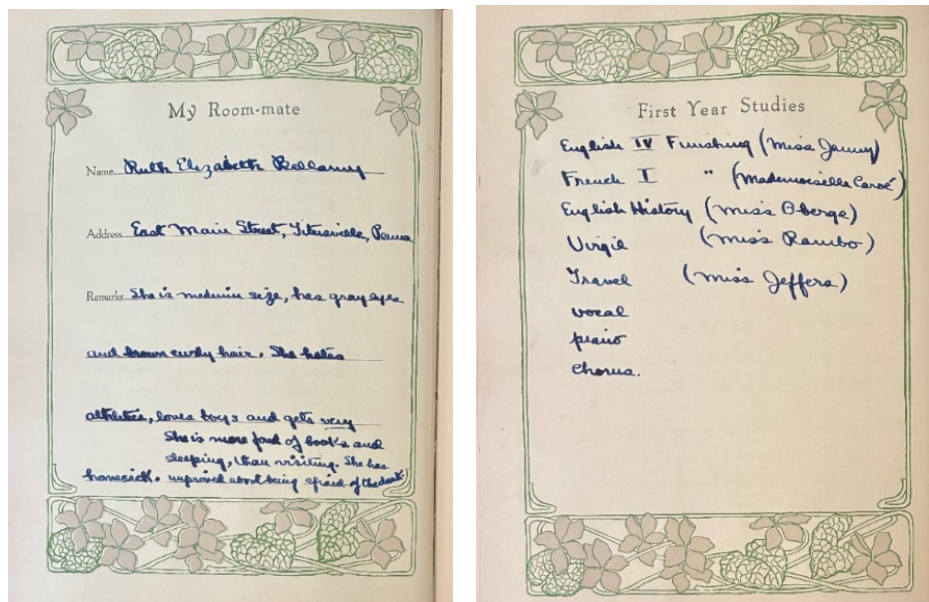 My Room-mate
Name Ruth Elizabeth Bellamy
Address East Main Street, Titusville, Penna
Remarks She is medium size, has gray eyes
and brown curly hair. She hates
athletics, loves boys and gets very
She is more fond of books and
sleeping, than visiting. She has
homesick. improved about being afraid of the dark.
First Year Studies
English IV Finishing (Miss Jenny)
French I " (Mademoiselle Caroé)
English History (Miss Oberge)
Virgil (Miss Rambo)
Travel (Miss Jeffers)
vocal
piano
Chorus.